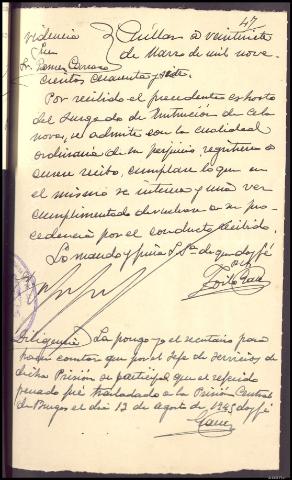 47
Providencia Cuéllar a veintisiete
Juez de Marzo de mil nove
Sr. Gomez Carrasco
cientos cuarenta y siete.
Por recibido el precedente exhorto
del Juzgado de Instrucción de Cela
nova, se admite con la cualidad
ordinaria de sin perjuicio, registrese
acuse recibo, cumplase lo que en
el mismo se interesa y una vez
cumplimentado devuelvase a su pro
cedencia por el conducto recibido.
Lo mando y firma S. Sª. de que doy fé
Diligencia. La pongo yo el secretario para
hacer constar que por el Jefe de Servicios de
dicha Prisión se participa que el referido
penado fué trasladado a la Prisión Central
de Burgos el dia 12 de agosto de 1945 doy fé